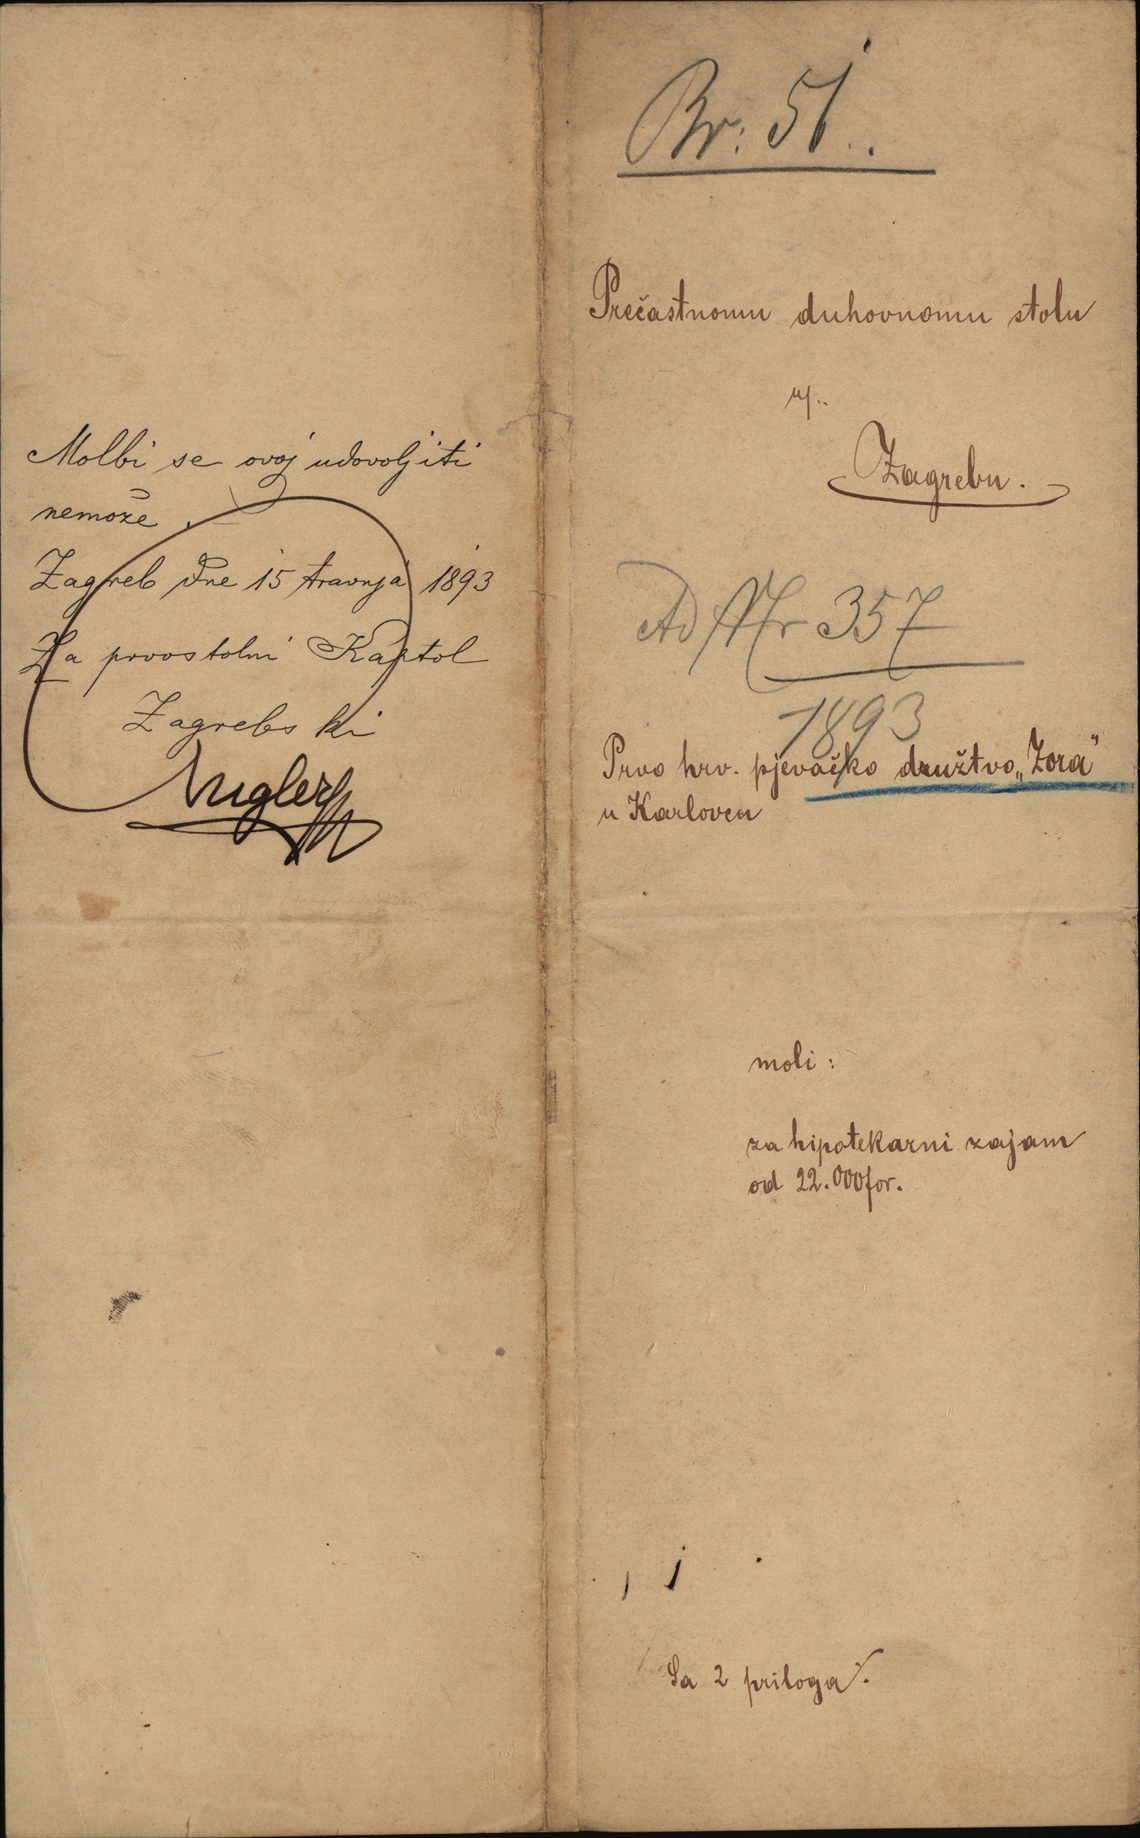 Molbi se ovoj udovoljiti
nemože.
Zagreb dne 15 travnja 1893
Za prvostolni Kaptol
Zagrebski
Br: 51.
Prečastnomu duhovnomu stolu
u
Zagrebu.
Ad Nr 357
1893
Prvo hrv. pjevačko družtvo „Zora"
u Karlovcu
moli:
za hipotekarni zajam
od 22.000 for.
Sa 2 priloga.